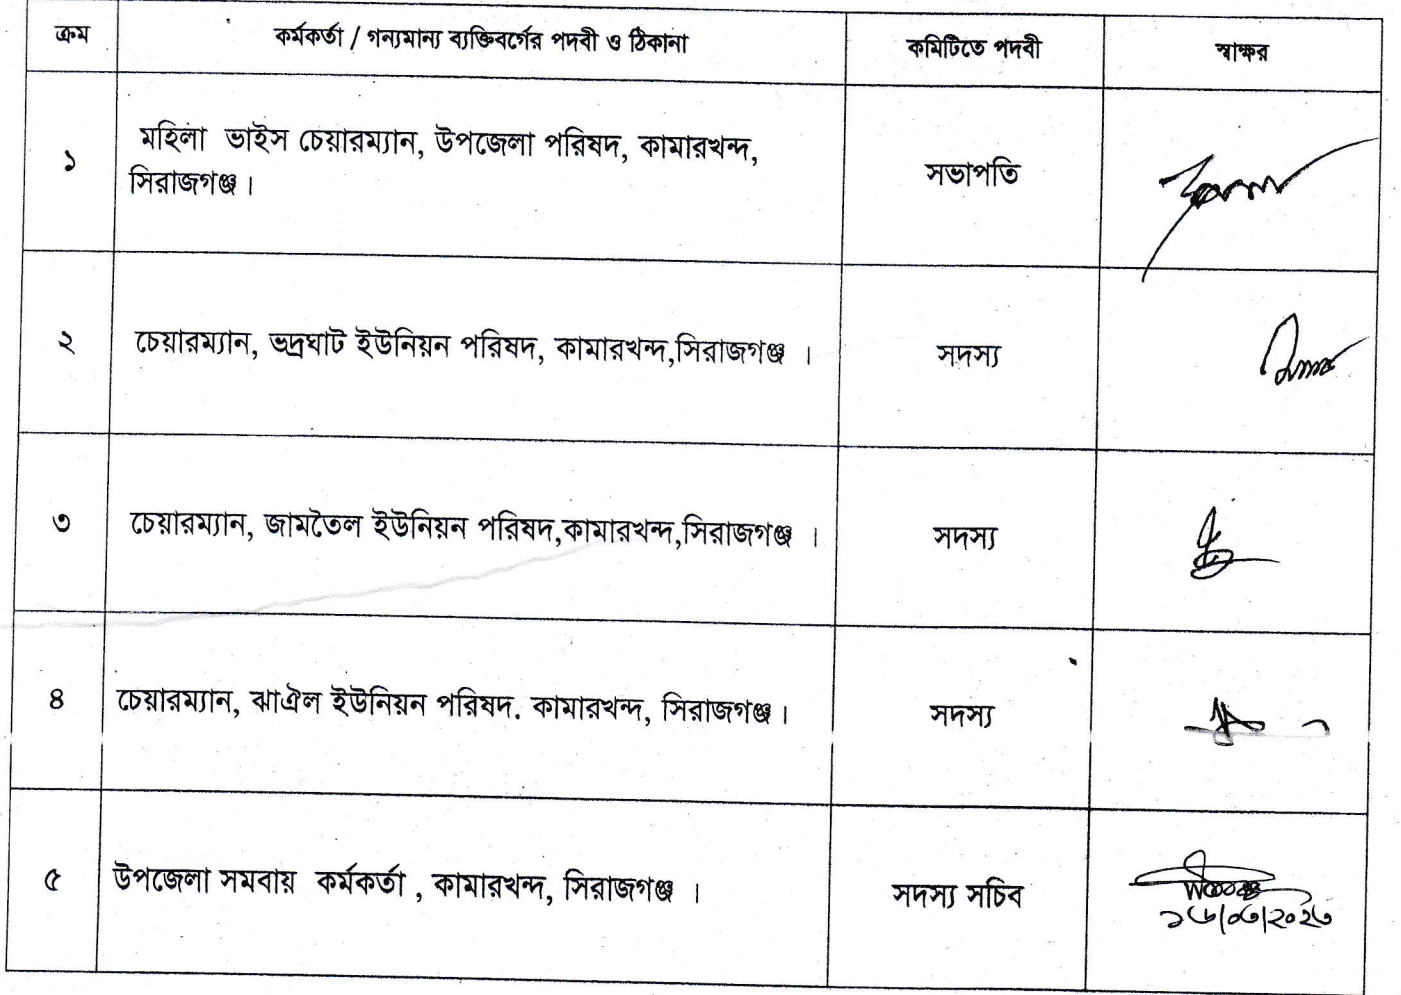 ক্রম কর্মকর্তা / গন্যমান্য ব্যক্তিবর্গের পদবী ও ঠিকানা কমিটিতে পদবী স্বাক্ষর
১ মহিলা ভাইস চেয়ারম্যান, উপজেলা পরিষদ, কামারখন্দ, সভাপতি
সিরাজগঞ্জ।
২ চেয়ারম্যান, ভদ্রঘাট ইউনিয়ন পরিষদ, কামারখন্দ,সিরাজগঞ্জ । সদস্য
৩ চেয়ারম্যান, জামতৈল ইউনিয়ন পরিষদ,কামারখন্দ,সিরাজগঞ্জ । সদস্য
৪ চেয়ারম্যান, ঝাঐল ইউনিয়ন পরিষদ. কামারখন্দ, সিরাজগঞ্জ। সদস্য
৫ উপজেলা সমবায় কর্মকর্তা , কামারখন্দ, সিরাজগঞ্জ । সদস্য সচিব